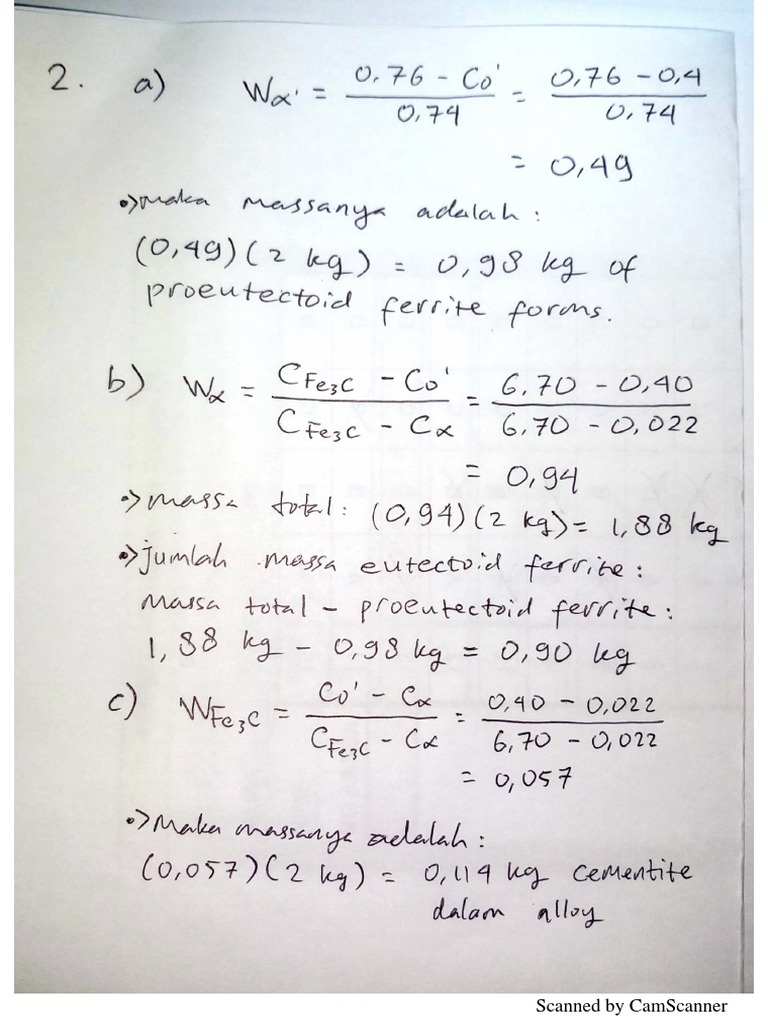 2. a) Wα' = (0,76 - Co')/(0,74) = (0,76 - 0,4)/(0,74)
= 0,49
•> maka massanya adalah :
(0,49) (2 kg) = 0,98 kg of
proeutectoid ferrite forms.
b) Wα = (CFe3C - Co')/(CFe3C - Cα) = (6,70 - 0,40)/(6,70 - 0,022)
= 0,94
•> massa total : (0,94) (2 kg) = 1,88 kg
•> jumlah massa eutectoid ferrite :
massa total - proeutectoid ferrite :
1,88 kg - 0,98 kg = 0,90 kg
c) WFe3C = (Co' - Cα)/(CFe3C - Cα) = (0,40 - 0,022)/(6,70 - 0,022)
= 0,057
•> Maka massanya adalah :
(0,057) (2 kg) = 0,114 kg cementite
dalam alloy
Scanned by CamScanner